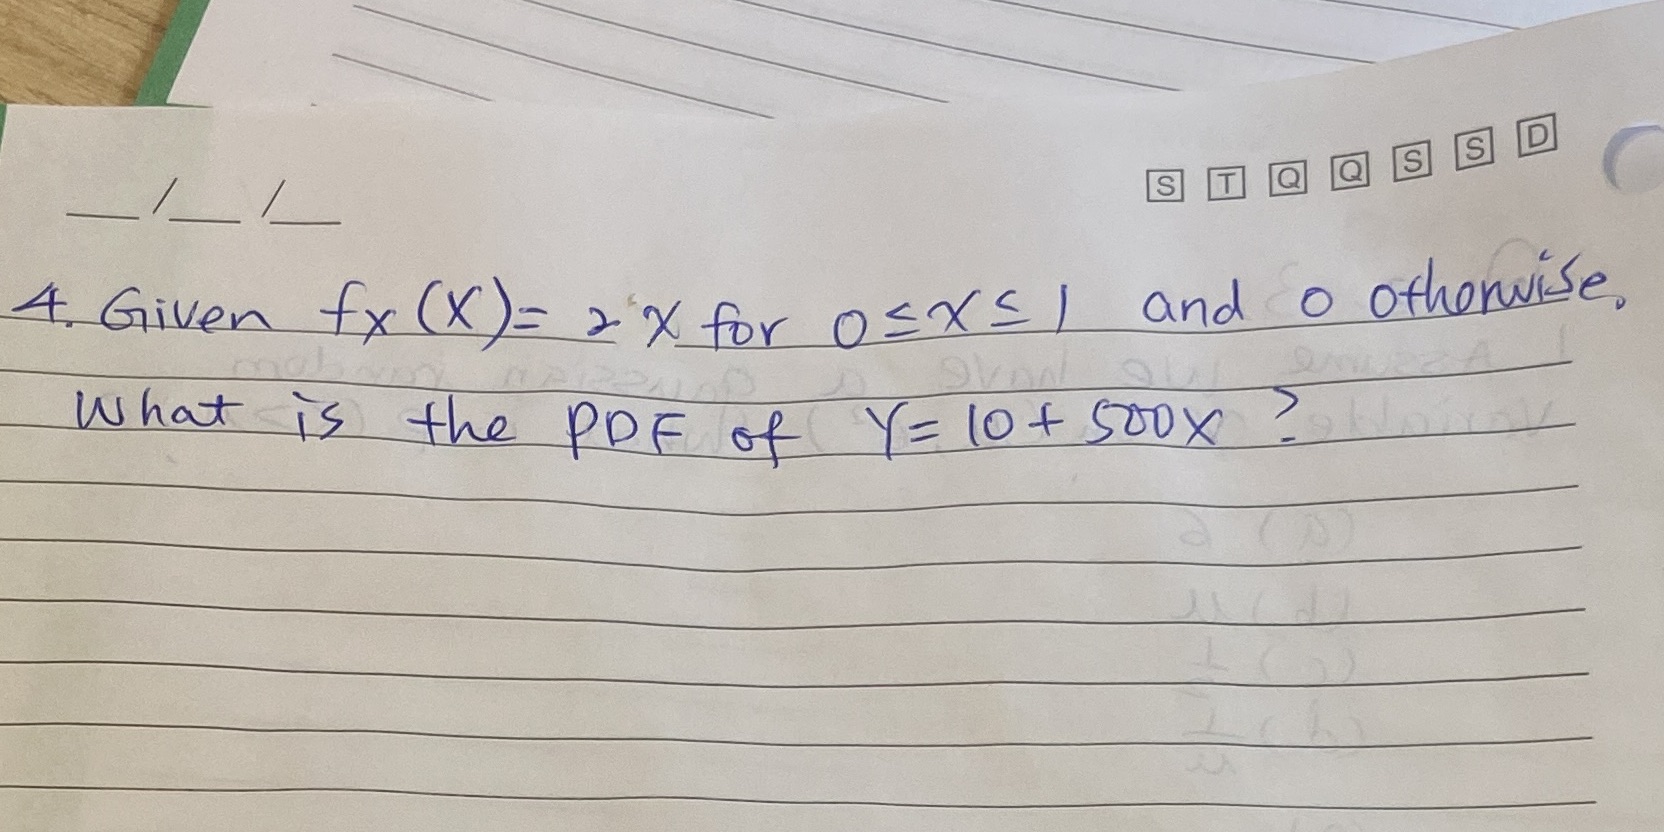 __/__/__
S T Q Q S S D
4. Given fx (X) = 2x for 0 ≤ x ≤ 1 and 0 otherwise.
What is the PDF of Y = 10 + 500X ?